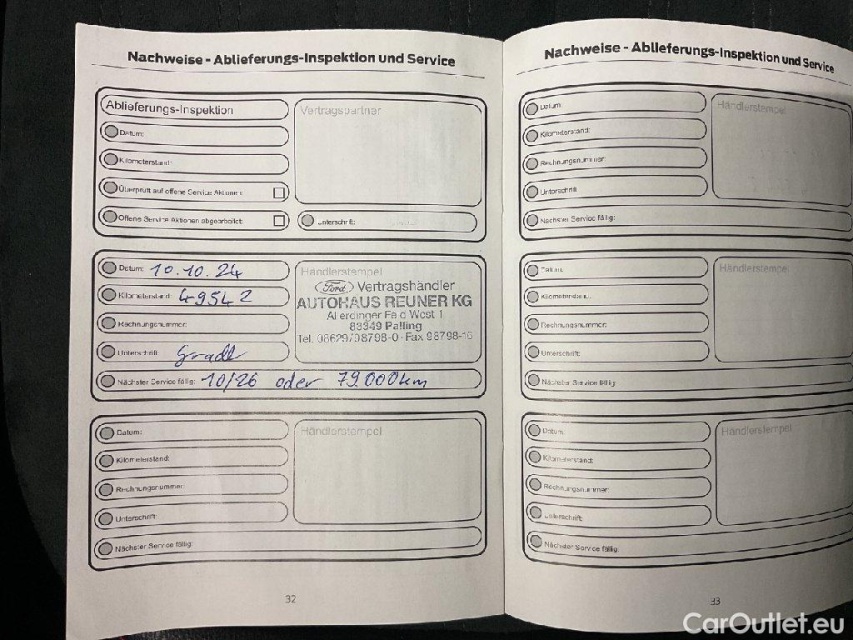 Nachweise - Ablieferungs-Inspektion und Service
Ablieferungs-Inspektion
Datum:
Kilometerstand:
Überprüft auf offene Service Aktionen:
Offene Service Aktionen abgearbeitet:
Vertragspartner
Unterschrift:
Datum: 10.10.24
Kilometerstand: 49542
Rechnungsnummer:
Unterschrift: Gradl
Nächster Service fällig: 10/26 oder 79.000km
Händlerstempel
Ford Vertragshändler
AUTOHAUS REUNER KG
Allerdinger Feld West 1
83349 Palling
Tel. 08629/98798-0 · Fax 98798-16
Datum:
Kilometerstand:
Rechnungsnummer:
Unterschrift:
Nächster Service fällig:
Händlerstempel
32
Nachweise - Ablieferungs-Inspektion und Service
Datum:
Kilometerstand:
Rechnungsnummer:
Unterschrift:
Nächster Service fällig:
Händlerstempel
Datum:
Kilometerstand:
Rechnungsnummer:
Unterschrift:
Nächster Service fällig:
Händlerstempel
Datum:
Kilometerstand:
Rechnungsnummer:
Unterschrift:
Nächster Service fällig:
Händlerstempel
33
CarOutlet.eu